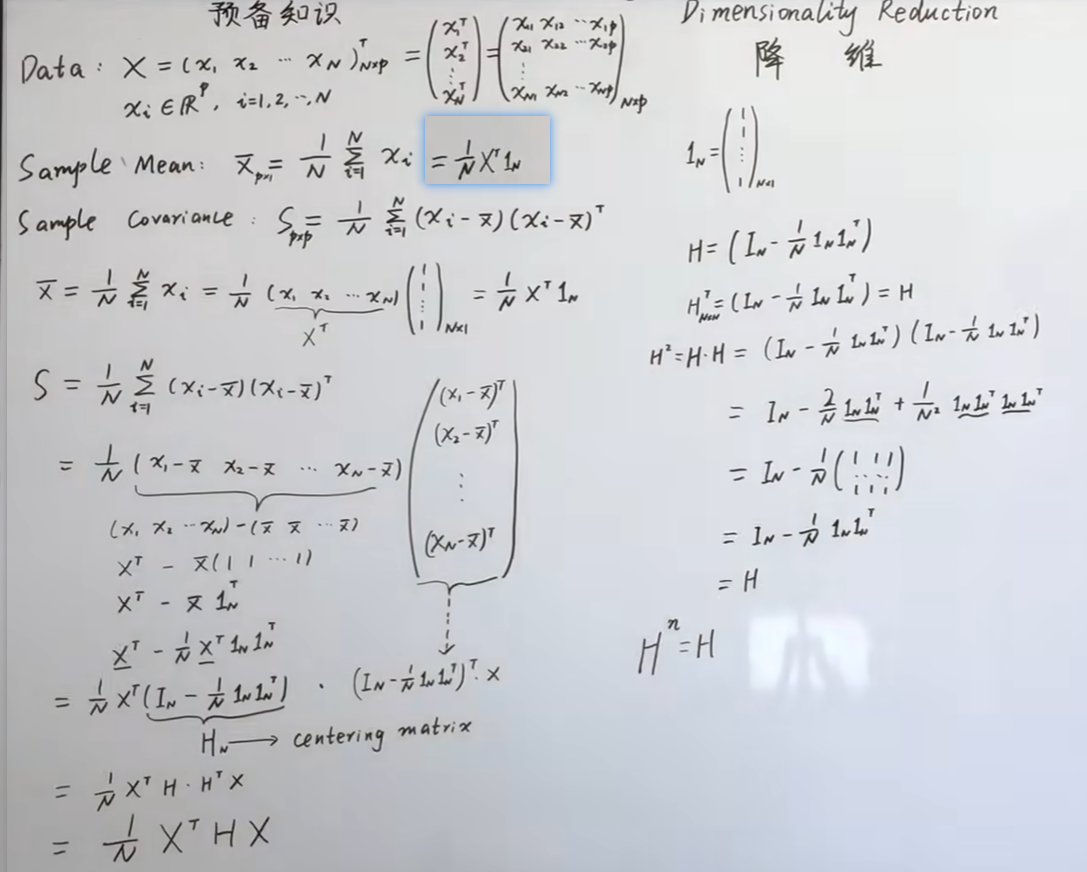 预备知识
Data: X = (x₁ x₂ ⋯ x_N)ᵀ_{N×p} = (x₁ᵀ x₂ᵀ ⋮ x_Nᵀ) = (x₁₁ x₁₂ ⋯ x₁p x₂₁ x₂₂ ⋯ x₂p ⋮ x_N1 x_N2 ⋯ x_Np)_{N×p}
xᵢ ∈ ℝᵖ, i=1,2,⋯,N
Sample Mean: X̄_{p×1} = 1/N ∑_{i=1}^{N} xᵢ = 1/N Xᵀ 1_N
Sample Covariance: S_{p×p} = 1/N ∑_{i=1}^{N} (xᵢ - x̄)(xᵢ - x̄)ᵀ
X̄ = 1/N ∑_{i=1}^{N} xᵢ = 1/N (x₁ x₂ ⋯ x_N) (1 1 ⋮ 1)_{N×1} = 1/N Xᵀ 1_N
Xᵀ
S = 1/N ∑_{i=1}^{N} (xᵢ - x̄)(xᵢ - x̄)ᵀ
= 1/N (x₁ - x̄ x₂ - x̄ ⋯ x_N - x̄) ((x₁ - x̄)ᵀ (x₂ - x̄)ᵀ ⋮ (x_N - x̄)ᵀ)
(x₁ x₂ ⋯ x_N) - (x̄ x̄ ⋯ x̄)
Xᵀ - x̄(1 1 ⋯ 1)
Xᵀ - x̄ 1_Nᵀ
Xᵀ - 1/N Xᵀ 1_N 1_Nᵀ
= 1/N Xᵀ (I_N - 1/N 1_N 1_Nᵀ) · (I_N - 1/N 1_N 1_Nᵀ)ᵀ · X
H_N → centering matrix
= 1/N Xᵀ H · Hᵀ X
= 1/N Xᵀ H X
Dimensionality Reduction
降 维
1_N = (1 1 ⋮ 1)_{N×1}
H = (I_N - 1/N 1_N 1_Nᵀ)
Hᵀ_{N×N} = (I_N - 1/N 1_N 1_Nᵀ) = H
H² = H·H = (I_N - 1/N 1_N 1_Nᵀ)(I_N - 1/N 1_N 1_Nᵀ)
= I_N - 2/N 1_N 1_Nᵀ + 1/N² 1_N 1_Nᵀ 1_N 1_Nᵀ
= I_N - 1/N (1 1 1 ⋯ 1 1 1)
= I_N - 1/N 1_N 1_Nᵀ
= H
Hⁿ = H